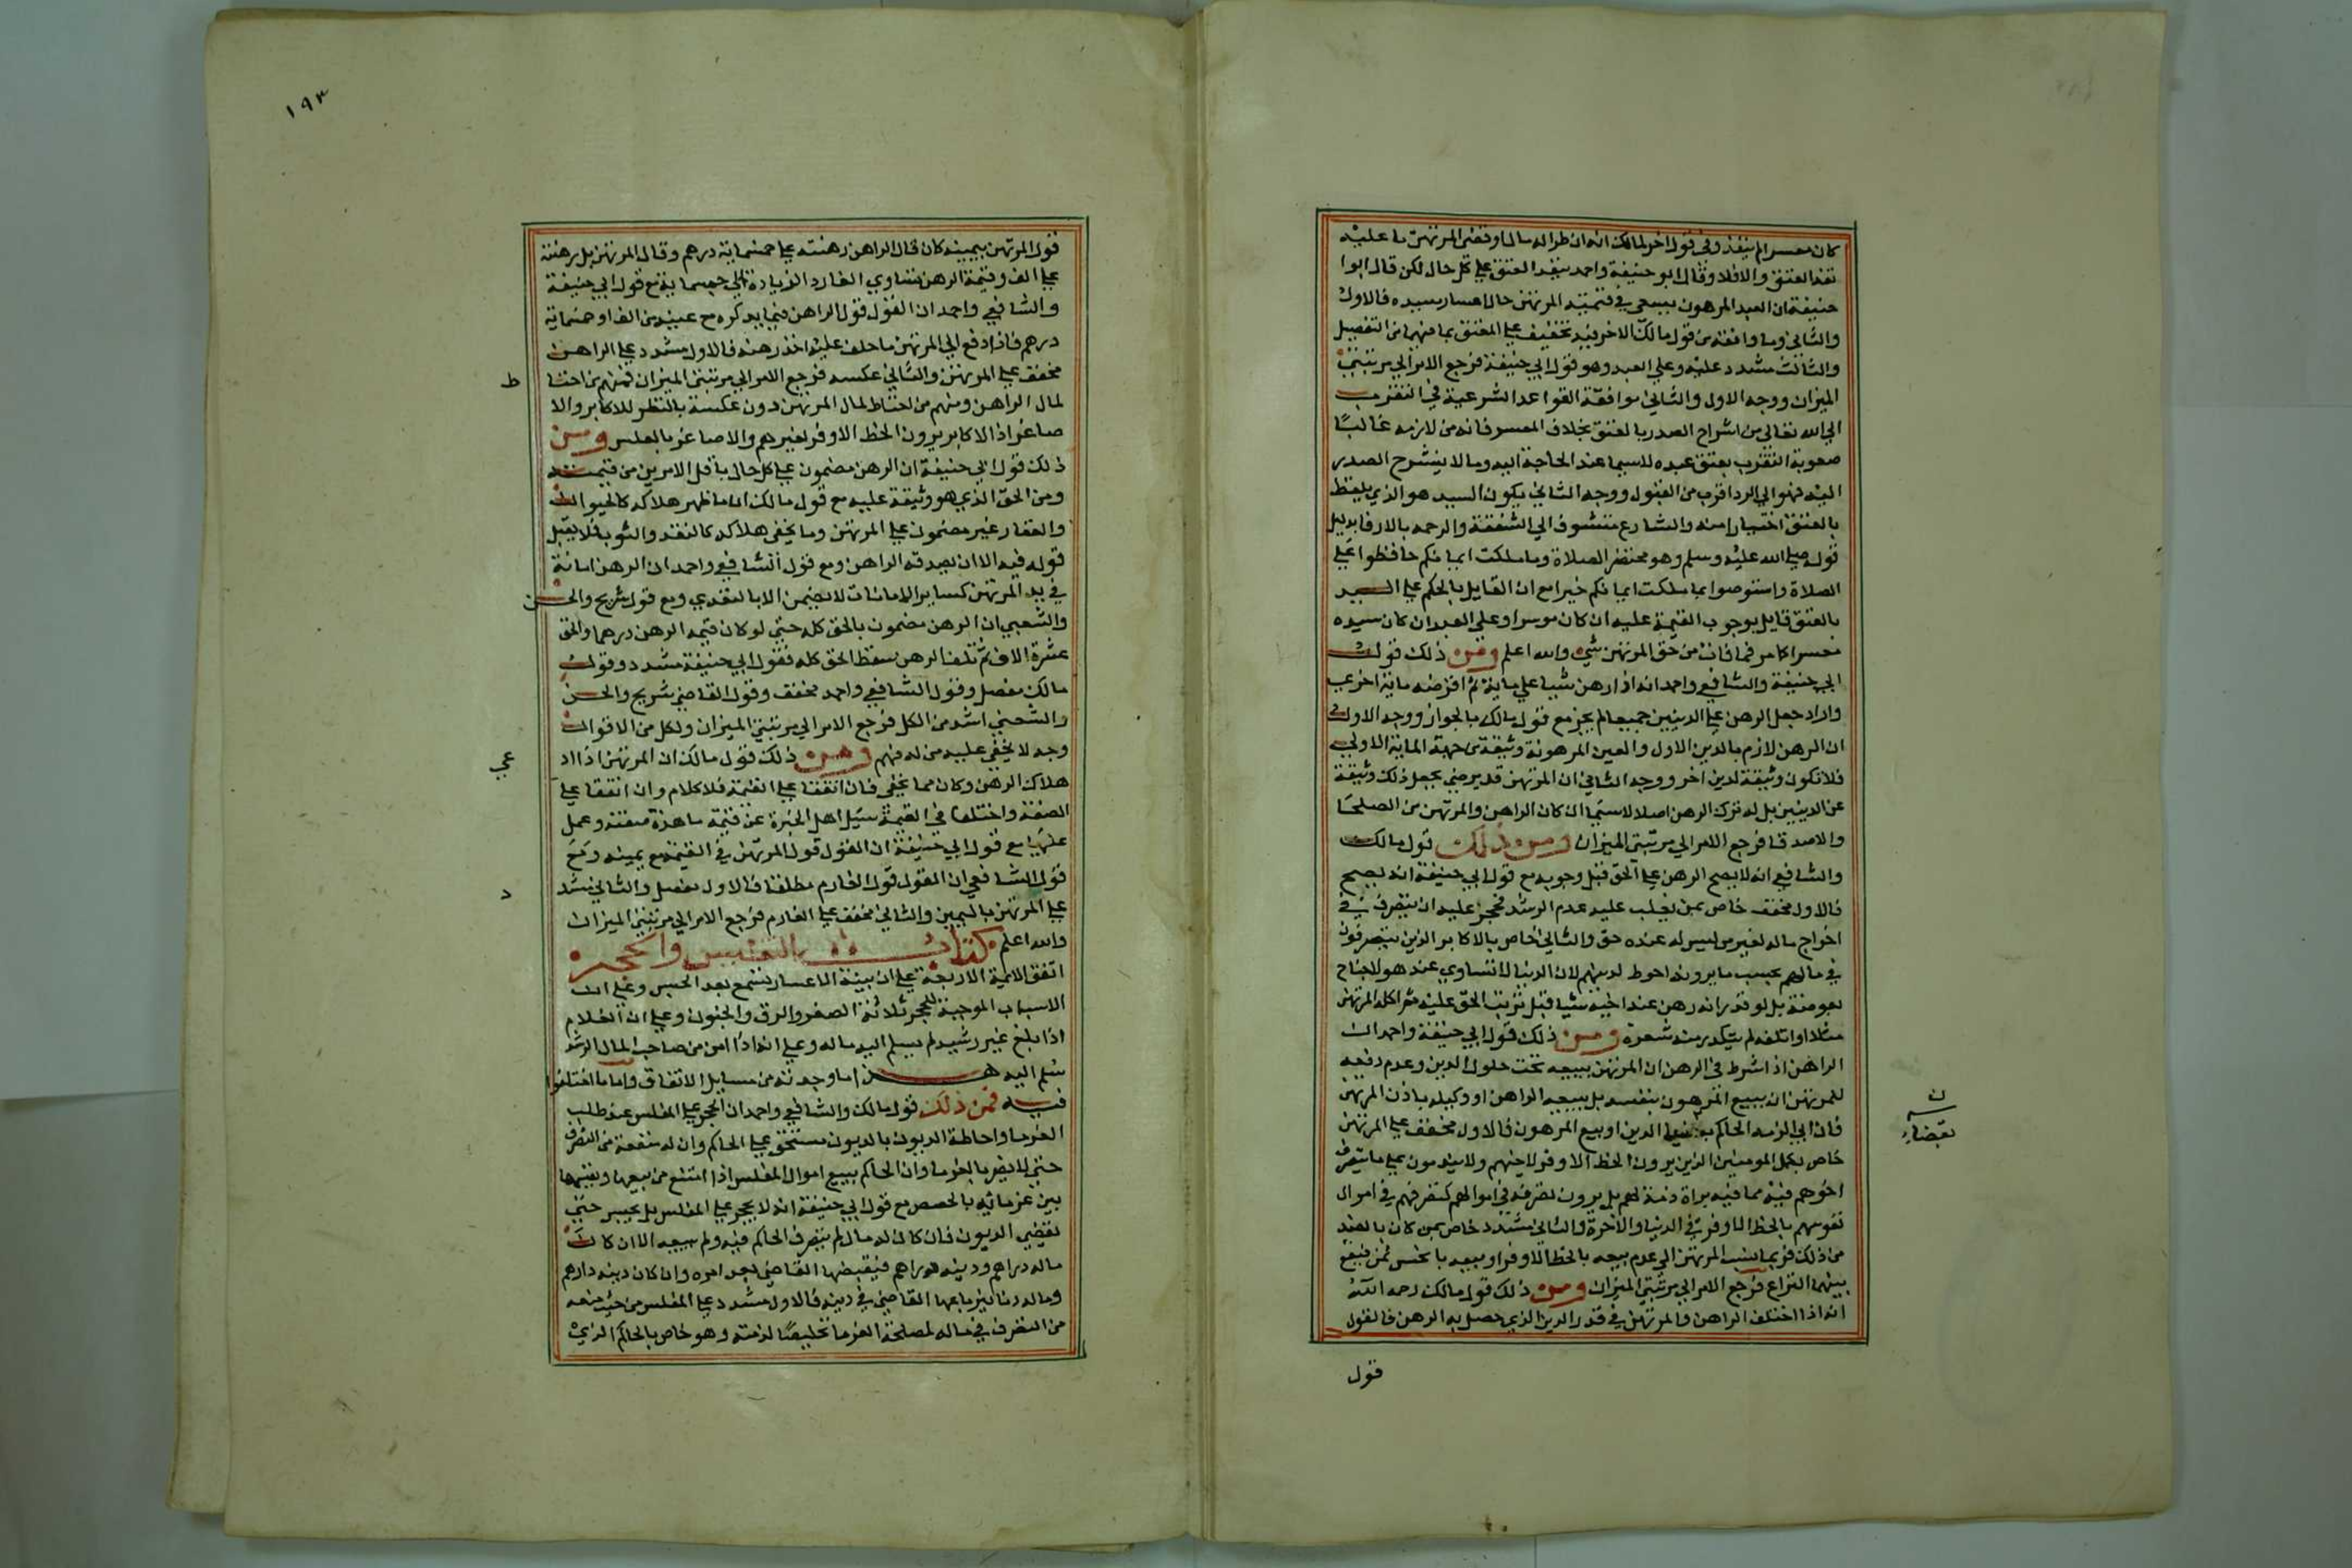 كان معسرا لم ينفذ وفي قول اخر لمالك انه ان طرا له مال او قضى المرتهن ما عليه
نفذ العتق والا فلا وقال ابو حنيفة واحمد ينفذ العتق على كل حال لكن قال ابوا
حنيفة ان العبد المرهون يسعى في قيمته للمرتهن حال اعسار سيده فالاول
والثاني وما وافقه من قول مالك الاخر فيه تخفيف على المعتق بما فيهما من التفصيل
والثالث مشدد عليه وعلى العبد وهو قول ابي حنيفة فرجع الامر الى مرتبتي
الميزان ووجه الاول والثاني موافقة القواعد الشرعية في التقرب
الى الله تعالى من انشراح الصدر بالعتق بخلاف المعسر فانه من لازمه غالبًا
صعوبة التقرب بعتق عبده لاسيما عند الحاجة اليه وما لا ينشرح الصدر
اليه فهو الى الرد اقرب من القبول ووجه الثاني يكون السيد هو الذي يلفظ
بالعتق اختيارا منه والشارع متشوف الى الشفقة والرحمه بالارقا بدليل
قوله صلى الله عليه وسلم وهو محتضر الصلاة وما ملكت ايمانكم حافظوا على
الصلاة واستوصوا بما ملكت ايمانكم خيرا مع ان القايل بالحكم على السيد
بالعتق قايل بوجوب القيمة عليه ان كان موسرا وعلى العبد ان كان سيده
معسرا كما مر فما فات من حق المرتهن شيء والله اعلم ومن ذلك قول
ابي حنيفة والشافعي واحمد انه اذا رهن شيا على ماية ثم اقرضه ماية اخرى
واراد جعل الرهن على الدينين جميعا لم يجز مع قول مالك بالجواز ووجه الاول
ان الرهن لازم بالدين الاول والعين المرهونة وثيقة من جهة الماية الاولى
فلا تكون وثيقة لدين اخر ووجه الثاني ان المرتهن قد يرضى بجعل ذلك وثيقة
عن الدينين بل له ترك الرهن اصلا لاسيما ان كان الراهن والمرتهن من الصلحا
والاصدقا فرجع الامر الى مرتبتي الميزان ومن ذلك قول مالك
والشافعي انه لا يصح الرهن على الحق قبل وجوبه مع قول ابي حنيفة انه يصح
فالاول مخفف خاص بمن يغلب عليه عدم الرشد فحجر عليه ان يتصرف في
اخراج ماله لغير من ليس له عنده حق والثاني خاص بالاكابر الذين يتصرفون
في مالهم بحسب ما يرونه احوط لدينهم لان الدنيا لا تساوي عند هولا جناح
بعوضة بل لو قدر انه رهن عند اخيه شيا قبل ترتب الحق عليه ثم اكله المرتهن
مثلا او اتلفه لم يتكدر منه شعرة ومن ذلك قول ابي حنيفة واحمد ان
الراهن اذا شرط في الرهن ان المرتهن يبيعه تحت حلول الدين وعدم دفعه
للمرتهن ان يبيع المرهون بنفسه بل يبيعه الراهن او وكيله باذن المرتهن
فان ابى الزمه الحاكم الدين او بيع المرهون فالاول مخفف على المرتهن
خاص بكمل المومنين الذين يرون الحظ الاوفر لاخيهم ولا يندمون على ما تصرف
اخوهم فيه مما فيه براة ذمة لهم بل يرون تصرفه في اموالهم كتصرفهم في اموال
نفوسهم بالحظ الاوفر في الدنيا والاخرة والثاني مشدد خاص بمن كان بالضد
من ذلك فربما نسب المرتهن الى عدم بيعه بالحظ الاوفر او بيعه بابخس ثمن فيقع
بينهما النزاع فرجع الامر الى مرتبتي الميزان ومن ذلك قول مالك رحمه الله
انه اذا اختلف الراهن والمرتهن في قدر الدين الذي حصل به الرهن فالقول
قول
ن
بقضاء
١٩٣
قول المرتهن بيمينه كان قال الراهن رهنته على خمسماية درهم وقال المرتهن بل رهنته
على الف وقيمة الرهن تساوي الفا رد الزيادة الى خمسماية مع قول ابي حنيفة
والشافعي واحمد ان القول قول الراهن فيما يذكره مع عينه من الف او خمسماية
درهم فاذا دفع الى المرتهن ما حلف عليه اخذ رهنه فالاول مشدد على الراهن
مخفف على المرتهن والثاني عكسه فرجع الامر الى مرتبتي الميزان فمنهم من احتا
ط
لمال الراهن ومنهم من احتاط لمال المرتهن دون عكسه بالنظر للاكابر والا
صاغر اذ الاكابر يرون الحظ الاوفر لغيرهم والاصاغر بالعكس ومن
ذلك قول ابي حنيفة ان الرهن مضمون على كل حال باقل الامرين من قيمته
ومن الحق الذي هو وثيقة عليه مع قول مالك ان ما ظهر هلاكه كالحيوان
والعقار غير مضمون على المرتهن وما يخفى هلاكه كالنقد والثوب فلا يقبل
قوله فيه الا ان يصدقه الراهن ومع قول الشافعي واحمد ان الرهن امانة
في يد المرتهن كساير الامانات لا يضمن الا بالتعدي ومع قول شريح والحسن
والشعبي ان الرهن مضمون بالحق كله حتى لو كان قيمة الرهن درهما والحق
عشرة الاف ثم تلف الرهن سقط الحق كله فقول ابي حنيفة مشدد وقول
مالك مفصل وقول الشافعي واحمد مخفف وقول القاضي شريح والحسن
والشعبي اشد من الكل فرجع الامر الى مرتبتي الميزان ولكل من الاقوال
وجه لا يخفى عليه من له فهم ومن ذلك قول مالك ان المرتهن اذا اد
عى
هلاك الرهن وكان مما يخفى فان اتفقا على القيمة فلا كلام وان اتفقا على
الصفة واختلفا في القيمة سيل اهل الخبرة عن قيمة ما هذه صفته وعمل
عليها مع قول ابي حنيفة ان القول قول المرتهن في القيمة مع يمينه ومع
قول الشافعي ان القول قول الغارم مطلقا فالاول مفصل والثاني شد
د
على المرتهن باليمين والثالث مخفف على الغارم فرجع الامر الى مرتبتي الميزان
والله اعلم كتاب التفليس والحجر
اتفق الايمة الاربعة على ان بينة الاعسار تسمع بعد الحبس وعلى ان
الاسباب الموجبة للحجر ثلاثة الصغر والرق والجنون وعلى ان الغلام
اذا بلغ غير رشيد لم يسلم اليه ماله وعلى انه اذا امن من صاحب المال الرشد
سلم اليه هذا ما وجدته من مسايل الاتفاق واما ما اختلفوا
فيه فمن ذلك قول مالك والشافعي واحمد ان الحجر على المفلس عند طلب
الغرما واحاطة الديون بالمديون مستحق على الحاكم وان له منعه من التصرف
حتى لا يضر بالغرما وان الحاكم يبيع اموال المفلس اذا امتنع من بيعها ويقسمها
بين غرمائه بالحصص مع قول ابي حنيفة انه لا يحجر على المفلس بل يحبس حتى
يقضي الديون فان كان له مال لم يتصرف الحاكم فيه ولم يبعه الا ان كان
ماله دراهم ودينه دراهم فيقبضها القاضي بعد امره وان كان دينه دارهم
وماله دنانير باعها القاضي في دينه فالاول مشدد على المفلس من حيث منعه
من التصرف في ماله لمصلحة الغرما تخليصًا لذمته وهو خاص بالحاكم الذي